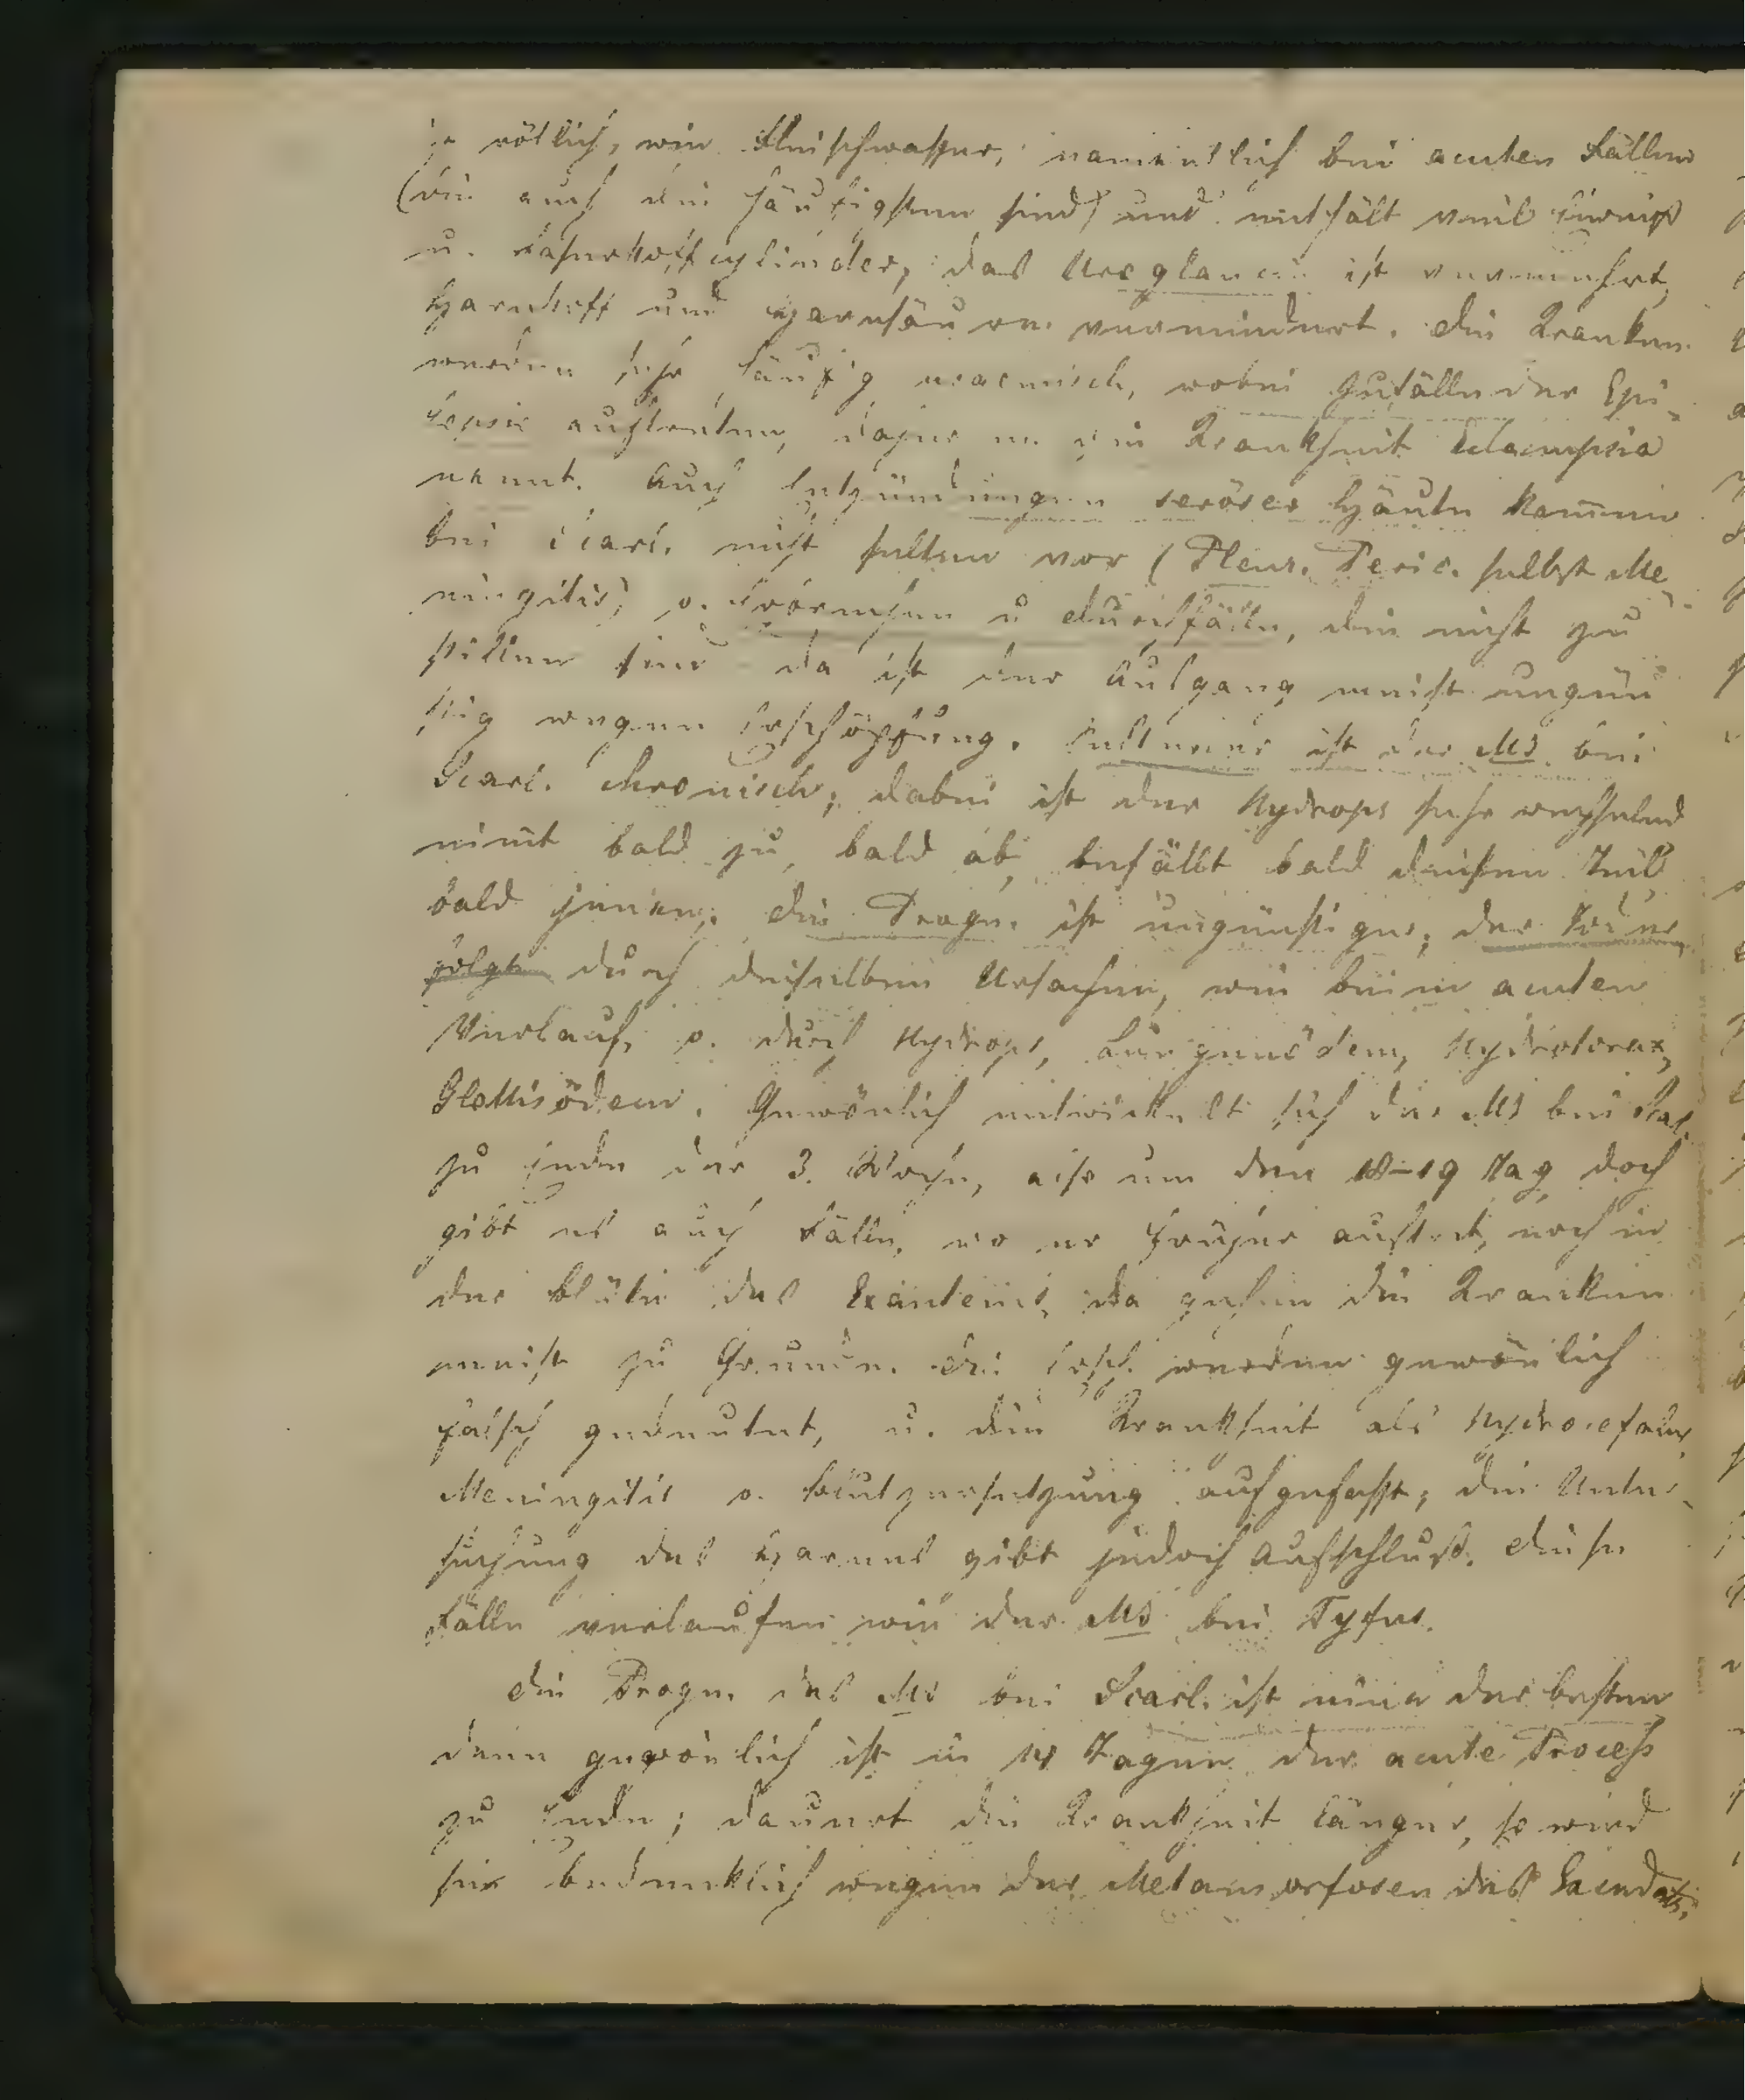 ja rötlich, wie Fleischwasser, namentlich bei acuten Fällen
(die auch die häufigsten sind) und enthält viel Eiweiß
u. Faserstoffcylinder, das Uroglaucin ist vermehrt,
Harnstoff und Harnsäure vermindert. Die Kranken
werden sehr häufig uraemisch, wobei Zufälle der Epi-
lepsie auftreten, daher m. die Krankheit Eclampsia
nennt. Auch Entzündungen seröser Häute kommen
bei Scarl. nicht selten vor (Pleur. Peric. selbst Me-
ningitis) o. Erbrechen u Durchfälle, die nicht zu
stillen sind da ist der Ausgang meist ungün
stig wegen Erschöpfung. Seltener ist der MB bei
Scarl. chronisch; dabei ist der Hydrops sehr wechselnd
nimt bald zu, bald ab, befällt bald diesen Teil
bald jenen; die Progn. ist ungünstiger; der Tod er
folgt durch dieselben Ursachen, wie beim acuten
Verlauf, o. durch Hydrops, Lungenödem, Hydrotorax,
Glottisödem. Gewönlich entwickelt sich der MB bei Scarl.
zu Ende der 3. Woche, also um den 18-19 Tag, doch
gibt es auch Fälle, wo er früher auftrit, noch in
der Blüte des Exantems, da gehen die Kranken
meist zu Grunde. Die Ersch. werden gewönlich
falsch gedeutet, u. die Krankheit als Hydrocefalus,
Meningitis o. Blutzersetzung aufgefasst; die Unter-
suchung des Harnes gibt jedoch Aufschluß. Diese
Fälle verlaufen wie der MB bei Tyfus.
Die Progn. des MB bei Scarl. ist eine der besten
denn gewönlich ist in 14 Tagen der acute Process
zu Ende; dauert die Krankheit länger, so wird
sie bedenklich wegen der Metamorfosen des Exsudats,